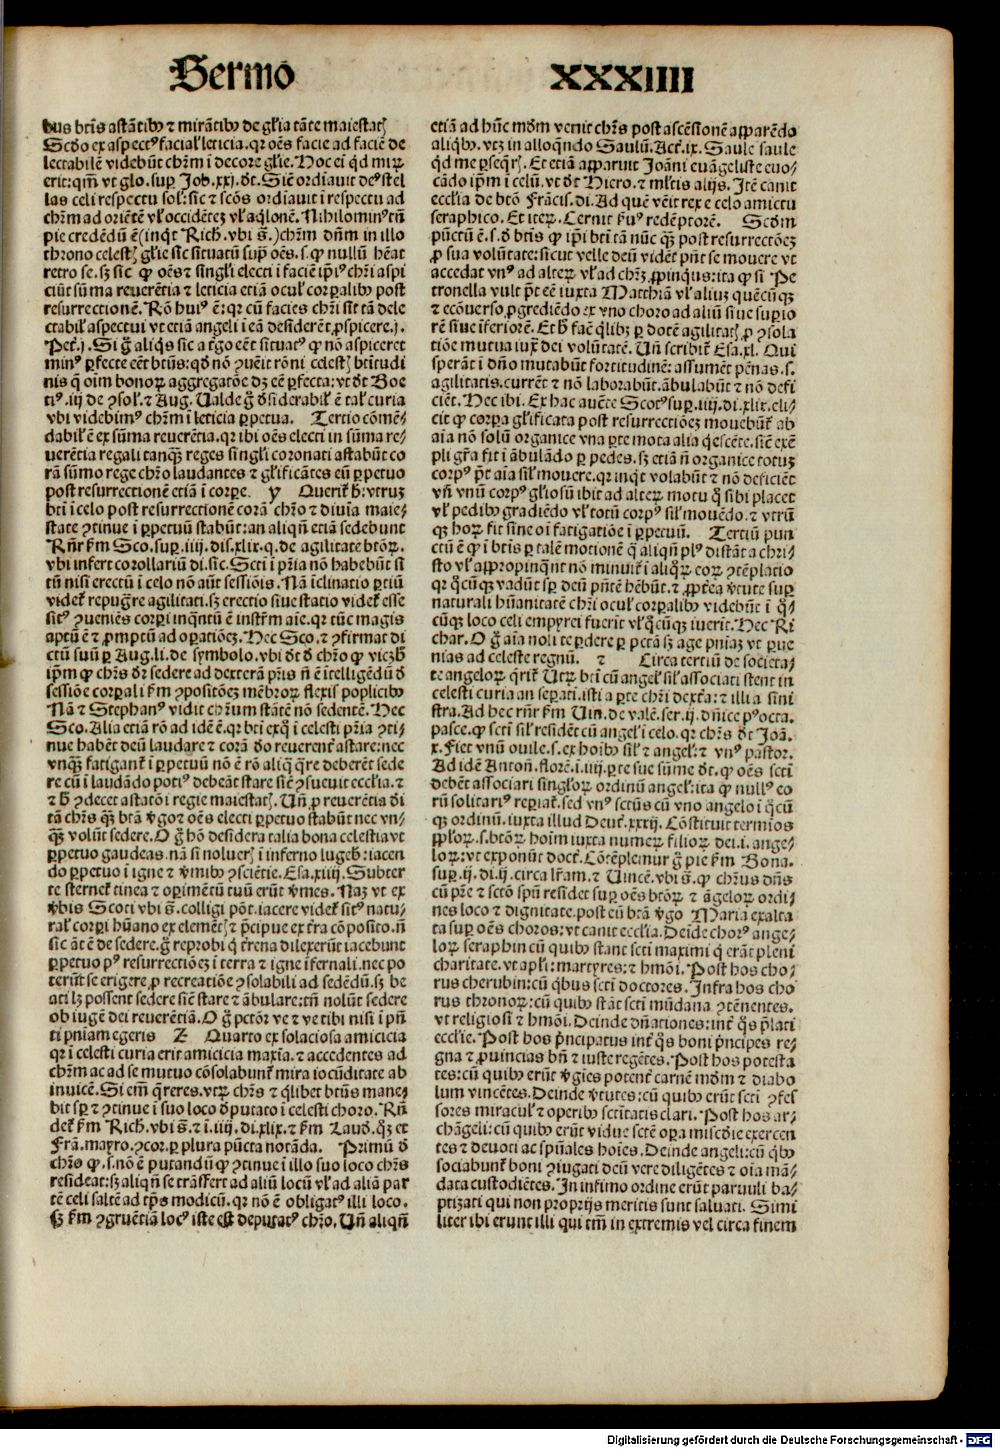 Sermo XXXIIII
bus btīs astātibꝰ ⁊ mirātibꝰ de gl̄ia tāte maiestatꝭ
Scd̄o ex aspectꝰ facial̓ leticia. qr oēs facie ad faciē de
lectabilē videbūt chr̄m ī decore gl̄ie. Hoc eī qd̄ mirꝝ
erit: qm̄ vt glo. suꝑ Job. xxj. dt̄. Sic̄ ordīauit deꝰ stel
las celi respectu sol̓: sic ⁊ scōs ordīauit ī respectu ad
chr̄m ad oriētē vl̓ occidētez vl̓ aq̇lonē. Nihilominꝰ tn̄
pie credēdū ē (inqͭ Rich̄. vbi s̄.) chr̄m dn̄m in illo
throno celestꝭ gl̄ie sic situatū supͣ oēs. s. ꝙ nullū h̄eat
retro se. sꝫ sic ꝙ oēs ⁊ singl̄i electi ī faciē ip̄iꝰ chr̄i aspi
ciūt sūma reuerētia ⁊ leticia etiā ocul̓ corꝑalibꝰ post
resurrectionē. Rō huiꝰ ē: qr cū facies chr̄i sit tā dele
ctabil̓ aspectui vt etiā angeli ī eā desiderēt ꝓspicere. j.
Pet̄. j. Si g̊ aliq̇s sic a tg̊o eēt situatꝰ ꝙ nō aspiceret
minꝰ ꝑfecte eēt btūs: qd̄ nō ꝯueīt rōni celestꝭ btītudi
nis q̄ oīm bonoꝝ aggregatōe dꝫ eē ꝑfecta: vt dt̄ Boe
tiꝰ. iij de ꝯsol̓. ⁊ Aug. Ualde g̊ d̓siderabil̓ ē tal̓ curia
vbi videbimꝰ chr̄m ī leticia ꝑpetua. Tertio cōmē-
dabil̓ ē ex sūma reuerētia. qr ibi oēs electi in sūma re-
uerētia regali tanqͣꝫ reges singl̄i coronati astabūt co
rā sūmo rege chr̄o laudantes ⁊ gl̄ificātes eū ꝑpetuo
post resurrectionē etiā ī corꝑe. y Querit̄ h̄: vtruꝫ
bt̄i ī celo post resurrectionē corā chr̄o ⁊ diuīa maie-
state ꝯtinue ī ꝑpetuū stabūt: an aliqn̄ etiā sedebunt
Rn̄r ẜm Sco. suꝑ. iiij. dis. xlix. q. de agilitate btōꝝ.
vbi infert corollariū di. sic. Scti ī pr̄ia nō habebūt si
tū nisi erectū ī celo nō aūt sessiōis. Nā īclinatio ꝑtiū
videt̄ repug̊re agilitati. sꝫ erectio siue statio videt̄ esse
sitꝰ ꝯueniēs corꝑi inqͣntū ē instr̄m aīe. qr tūc magis
aptū ē ⁊ ꝓmptū ad oꝑatiōeꝫ. Hec Sco. ⁊ ꝯfirmat di
ctū suū ꝑ Aug. li. de symbolo. vbi dt̄ d̓ chr̄o ꝙ vicꝫ h̓
ip̄m ꝙ chr̄s dr̄ sedere ad dexterā pr̄is n̄ ē ītelligēdū d̓
sessiōe corꝑali ẜm ꝯpositōeꝫ mēbroꝝ flexis poplicibꝰ
Nā ⁊ Stephanꝰ vidit chr̄um stātē nō sedentē. Hec
Sco. Alia etiā rō ad idē ē. qr bt̄i exq̇ ī celesti pr̄ia ꝯti-
nue habēt deū laudare ⁊ corā d̓o reuerent̄ astare: nec
vnqͣꝫ fatigant̄ ī ꝑpetuū nō ē rō aliq̄ q̄re deberēt sede
re cū ī laudādo potiꝰ debeāt stare sic̄ ꝯsueuit eccl̓ia. ⁊
⁊ h̓ ꝯdecet astatōī regie maiestatꝭ. Un̄ ꝓ reuerētia di
tā chr̄s qͣꝫ btā v̓go ⁊ oēs electi ꝑpetuo stabūt nec vn-
qͣꝫ volūt sedere. O g̊ hō desidera talia bona celestia vt
ꝑpetuo gaudeas. nā si nolueꝭ ī inferno lugeb̓: iacen
do ꝑpetuo ī igne ⁊ v̓mibꝰ ꝯsciētie. Esa. xiiij. Subter
te sternet̄ tinea ⁊ oꝑimētū tuū erūt v̓mes. Naꝫ vt ex
v̓bis Scoti vbi s̄. colligi pōt. iacere videt̄ sitꝰ natu-
ral̓ corꝑi hūano ex elemētꝭ ⁊ p̄cipue ex tr̄a cōposito. n̄
sic āt ē de sedere. g̊ reprobi q̇ tr̄rena dilexerūt iacebunt
ꝑpetuo pꝰ resurrectiōeꝫ ī terra ⁊ igne īfernali. nec po
terūt se erigere ꝓ recreatiōe ꝯsolabili ad sedēdū. sꝫ be
ati lꝫ possent sedere siue stare ⁊ ābulare: tn̄ nolūt sedere
ob iugē dei reuerētiā. O g̊ pctōr ve ⁊ ve tibi nisi ī pn̄
ti pn̄iam egeris z Quarto ex solaciosa amicicia
qr ī celesti curia erit amicicia maxīa. ⁊ accedentes ad
chr̄m ac ad se mutuo cōsolabunt̄ mira iocūditate ab
inuicē. Si em̄ q̄reres. vtꝝ chr̄s ⁊ q̇libet btūs mane-
bit sꝑ ⁊ ꝯtinue ī suo loco d̓putato ī celesti choro. Rn̄
det̄ ẜm Rich̄. vbi s̄. ⁊ ī. iiij. di. xlix. ⁊ ẜm Laud̄. qͣꝫ et
Frā. mayro. ꝯcor. ꝑ plura pūcta notāda. Primū d̓
chr̄s ꝙ. s. nō ē putandū ꝙ ꝯtinue ī illo suo loco chr̄s
resideat: sꝫ aliqn̄ se trāsfert ad aliū locū vl̓ ad aliā par
tē celi saltē ad tp̄s modicū. qr nō ē obligatꝰ illi loco.
sꝫ ẜm ꝯgruētiā locꝰ iste est deputatꝰ chr̄o. Un̄ aliqn̄
etiā ad hūc mōm venit chr̄s post ascēsionē apparēdo
aliqbꝰ. vtꝫ in alloqndo Saulū. Act̄. ix. Saule saule
qd̄ me ꝑseqrꝭ. Et etiā apparuit Joāni euāgeliste euo-
cādo ip̄m ī celū. vt dt̄ Hiero. ⁊ ml̄tis alijs. Itē canit
eccl̓ia de btō Frācis. di. Ad quē venit rex e celo amictu
seraphico. Et iteꝝ. Cernit ẜuꝰ redēptorē. Scd̄m
pūctū ē. s. d̓ btīs ꝙ ip̄i bt̄i tā nūc qͣꝫ post resurrectōeꝫ
ꝓ sua volūtate: sicut velle deū vidēt pn̄t se mouere vt
accedat vnꝰ ad alteꝝ vl̓ ad chr̄ꝫ ꝓpinqꝰ: ita ꝙ si Pe
tronella vult pōt eē iuxta Matthiā vl̓ aliuꝫ quēcūqꝫ
⁊ ecōuerso ꝓgrediēdo ex vno choro ad aliū siue suꝑio
rē siue īferiorē. Et h̓ faē q̇libꝫ ꝑ dotē agilitatꝭ ꝓ ꝯsola
tiōe mutua iuxͣ dei volūtatē. Un̄ scribit̄ Esa. xl. Qui
sperāt ī dn̄o mutabūt fortitudinē: assumēt pēnas. s.
agilitatis. currēt ⁊ nō laborabūt. ābulabūt ⁊ nō defi
ciēt. Hec ibi. Ex hac aucte Scotꝰ suꝑ. iiij. di. xlix. eli-
cit ꝙ corpͣ gl̄ificata post resurrectiōeꝫ mouebūt̄ ab
aīa nō solū organice vna ꝑte mota alia q̇escēte. sic̄ exē
pli gr̄a fit ī ābulādo ꝑ pedes. sꝫ etiā n̄ organice totuꝫ
corpꝰ pt̄ aīa sil̓ mouere. qr inqͭ volabūt ⁊ nō deficiēt
vn̄ vnū corpꝰ gl̄iosū ibit ad alteꝝ motu q̇ sibi placet
vl̓ pedibꝰ gradiēdo vl̓ totū corpꝰ sil̓ mouēdo. ⁊ vtrū
qꝫ hoꝝ fit sine oī fatigatiōe ī ꝑpetuū. Tertiū pun
ctū ē ꝙ ī btīs ꝑ talē motionē q̄ aliqn̄ plꝰ distāt a chri-
sto vl̓ appropinqͣnt nō minuit̄ ī aliqͦꝝ eoꝝ ꝯtēplatio
qr q̇cūqꝫ vadūt sꝑ deū pn̄tē hēbūt. ⁊ ꝓpt̓ea v̓tute suꝑ
naturali hūanitatē chr̄i ocul̓ corꝑalibꝰ videbūt ī q̇-
cūqꝫ loco celi empyrei fuerit vl̓ q̇cūqꝫ iuerit. Hec Ri
char. O g̊ aīa noli te ꝑdere ꝑ pctā sꝫ age pn̄iaꝫ vt ꝑue
nias ad celeste regnū. ⁊ Circa tertiū de societa-
te angeloꝝ q̄rit̄ Utꝝ bt̄i cū angel̓ sil̓ associati stent in
celesti curia an seꝑati. isti a ꝑte chr̄i dext̓a: ⁊ illi a sini
stra. Ad hec rn̄r ẜm Uin. de valē. ser. ij. dn̄ice pͥ octa.
pasce. ꝙ scti sil̓ residēt cū angel̓ ī celo. qr chr̄s dt̄ Joā.
x. Fiet vnū ouile. s. ex hoībꝰ sil̓ ⁊ angel̓: ⁊ vnꝰ pastor.
Ad idē Anton̄. florē. ī. iiij. ꝑte sue sūme dt̄. ꝙ oēs scti
debēt associari singl̓oꝝ ordinū angel̓: ita ꝙ nullꝰ eo
rū solitariꝰ reꝑiat̄. sed vnꝰ sctūs cū vno angelo ī q̇cū
qꝫ ordinū. iuxta illud Deut̄. xxxij. Cōstituit termios
pp̄loꝝ. s. btōꝝ hoīm iuxta numeꝝ filioꝝ dei. i. ange-
loꝝ: vt exponūt doct̄. Cōtēplemur g̊ pie ẜm Bona.
suꝑ. ij. di. ij. circa lr̄am. ⁊ Uincē. vbi s̄. ꝙ chr̄us dn̄s
cū pr̄e ⁊ sctō spū residet suꝑ oēs btōꝝ ⁊ āgeloꝝ ordi-
nes loco ⁊ dignitate. post eū btā v̓go Maria exalta
ta suꝑ oēs choros: vt canit eccl̓ia. Deīde chorꝰ ange-
loꝝ seraphin cū quibꝰ stant scti maximi q̇ erāt pleni
charitate. vt apl̓i: martyres: ⁊ hmōi. Post hos cho-
rus cherubin: cū q̇bus scti doctores. Infra hos cho
rus thronoꝝ: cū quibꝰ stāt scti mūdana ꝯtēnentes.
vt religiosi ⁊ hmōi. Deinde dn̄ationes: int̓ q̄s p̄lati
eccl̓ie. Post hos p̄ncipatus int̓ q̄s boni p̄ncipes re-
gna ⁊ ꝓuincias bn̄ ⁊ iuste regētes. Post hos potesta
tes: cū quibꝰ erūt v̓gīes potent̓ carnē mōm ⁊ diabo
lum vincētes. Deinde v̓tutes: cū quibꝰ erūt scti ꝯfes
sores miracul̓ ⁊ oꝑibꝰ sctītatis clari. Post hos ar-
chāgeli: cū quibꝰ erūt vidue sctē oꝑa misc̄die exercen
tes ⁊ deuoti ac spūales hoīes. Deinde angeli: cū q̇bꝰ
sociabunt̄ boni ꝯiugati deū vere diligētes ⁊ oīa mā-
data custodiētes. In infimo ordine erūt paruuli ba-
ptizati qui non proprijs meritis sunt saluati. Simi
liter ibi erunt illi qui tm̄ in extremis vel circa finem
Digitalisierung gefördert durch die Deutsche Forschungsgemeinschaft - DFG